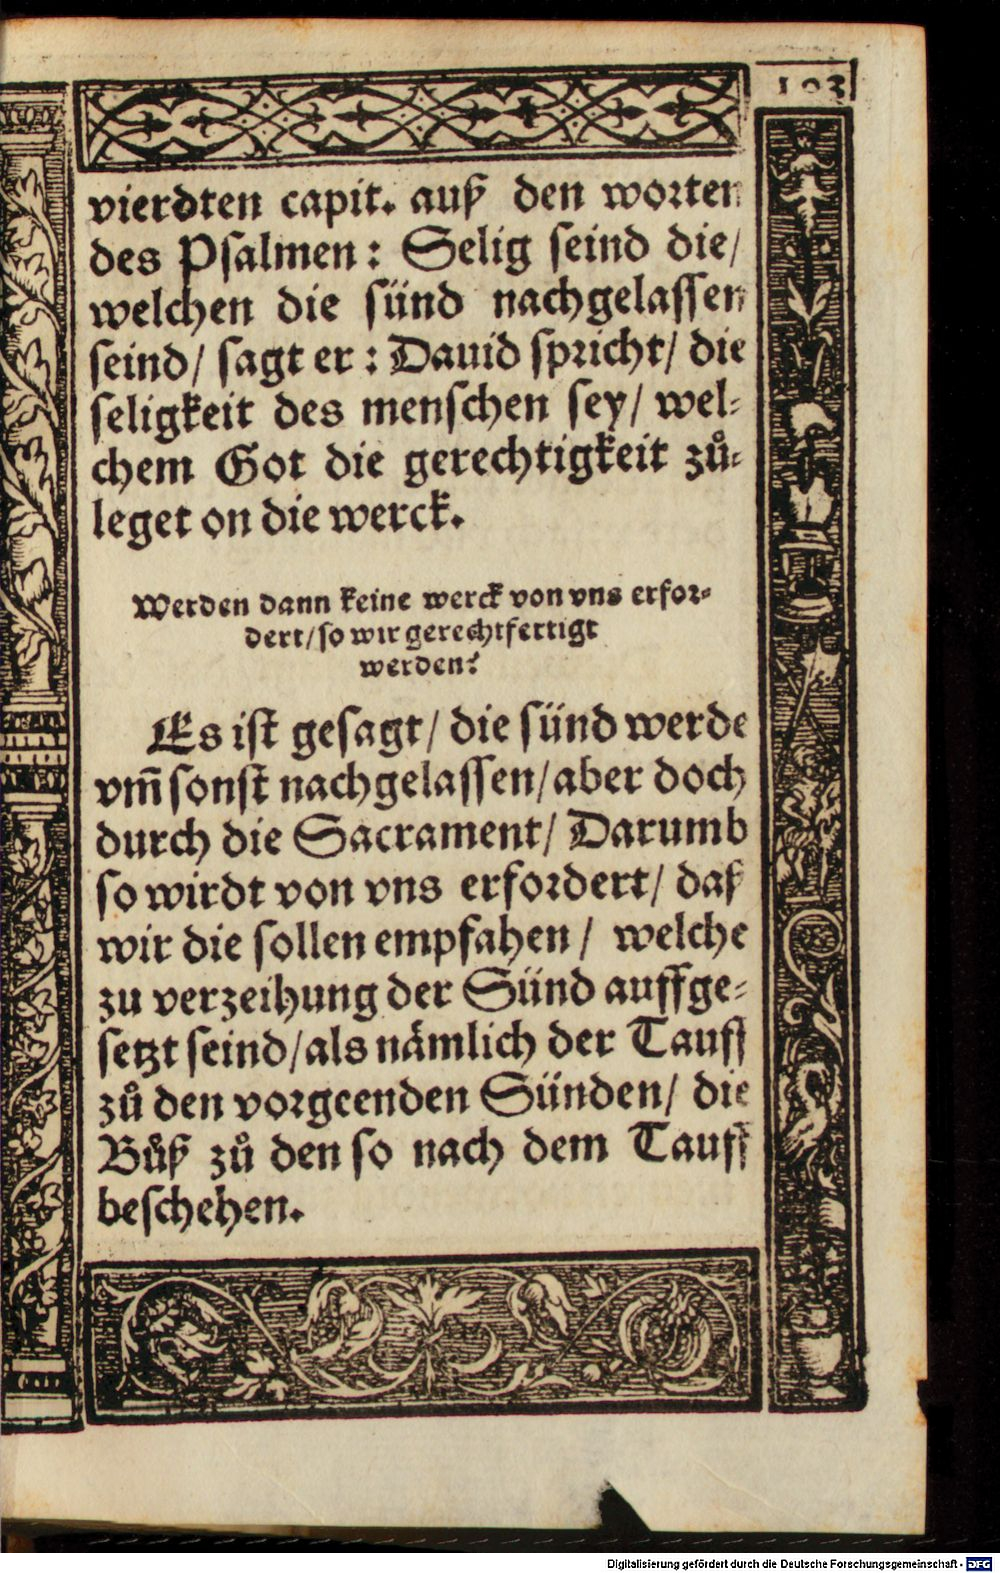 103
vierdten capit. auß den worten
des Psalmen: Selig seind die/
welchen die sünd nachgelassen
seind/ sagt er: Dauid spricht/ die
seligkeit des menschen sey/ wel⸗
chem Got die gerechtigkeit zů⸗
leget on die werck.
Werden dann keine werck von vns erfor⸗
dert/ so wir gerechtfertigt
werden?
Es ist gesagt/ die sünd werde
vm̃sonst nachgelassen/ aber doch
durch die Sacrament/ Darumb
so wirdt von vns erfordert/ daß
wir die sollen empfahen/ welche
zu verzeihung der Sünd auffge⸗
setzt seind/ als nämlich der Tauff
zů den vorgeenden Sünden/ die
Bůß zů den so nach dem Tauff
beschehen.
Digitalisierung gefördert durch die Deutsche Forschungsgemeinschaft - DFG